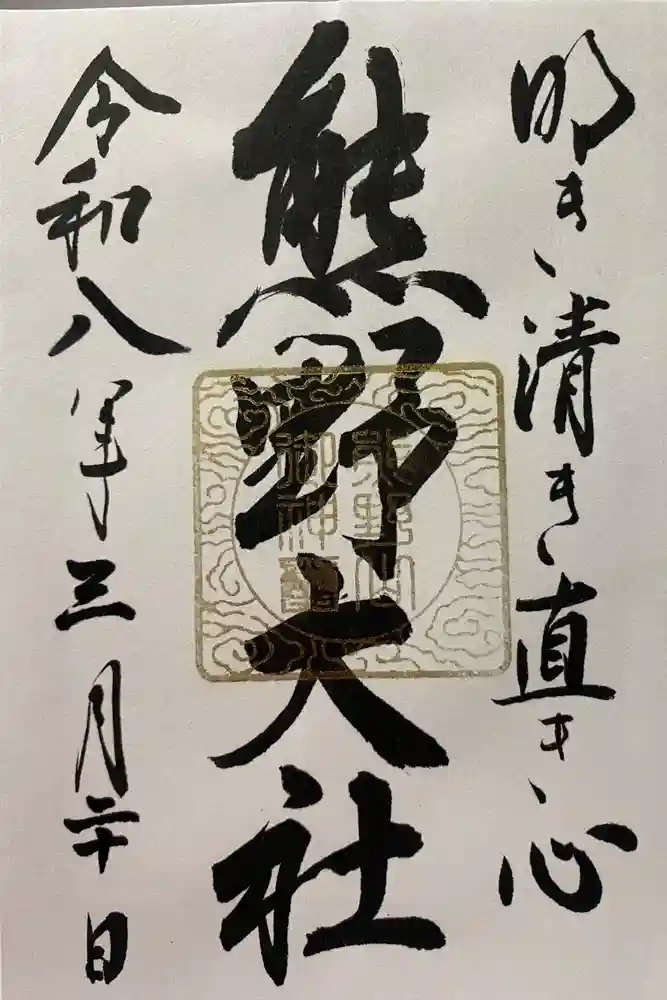 明き、清き、直き、心
熊野大社
熊野山
御神璽
令和八年三月二十日